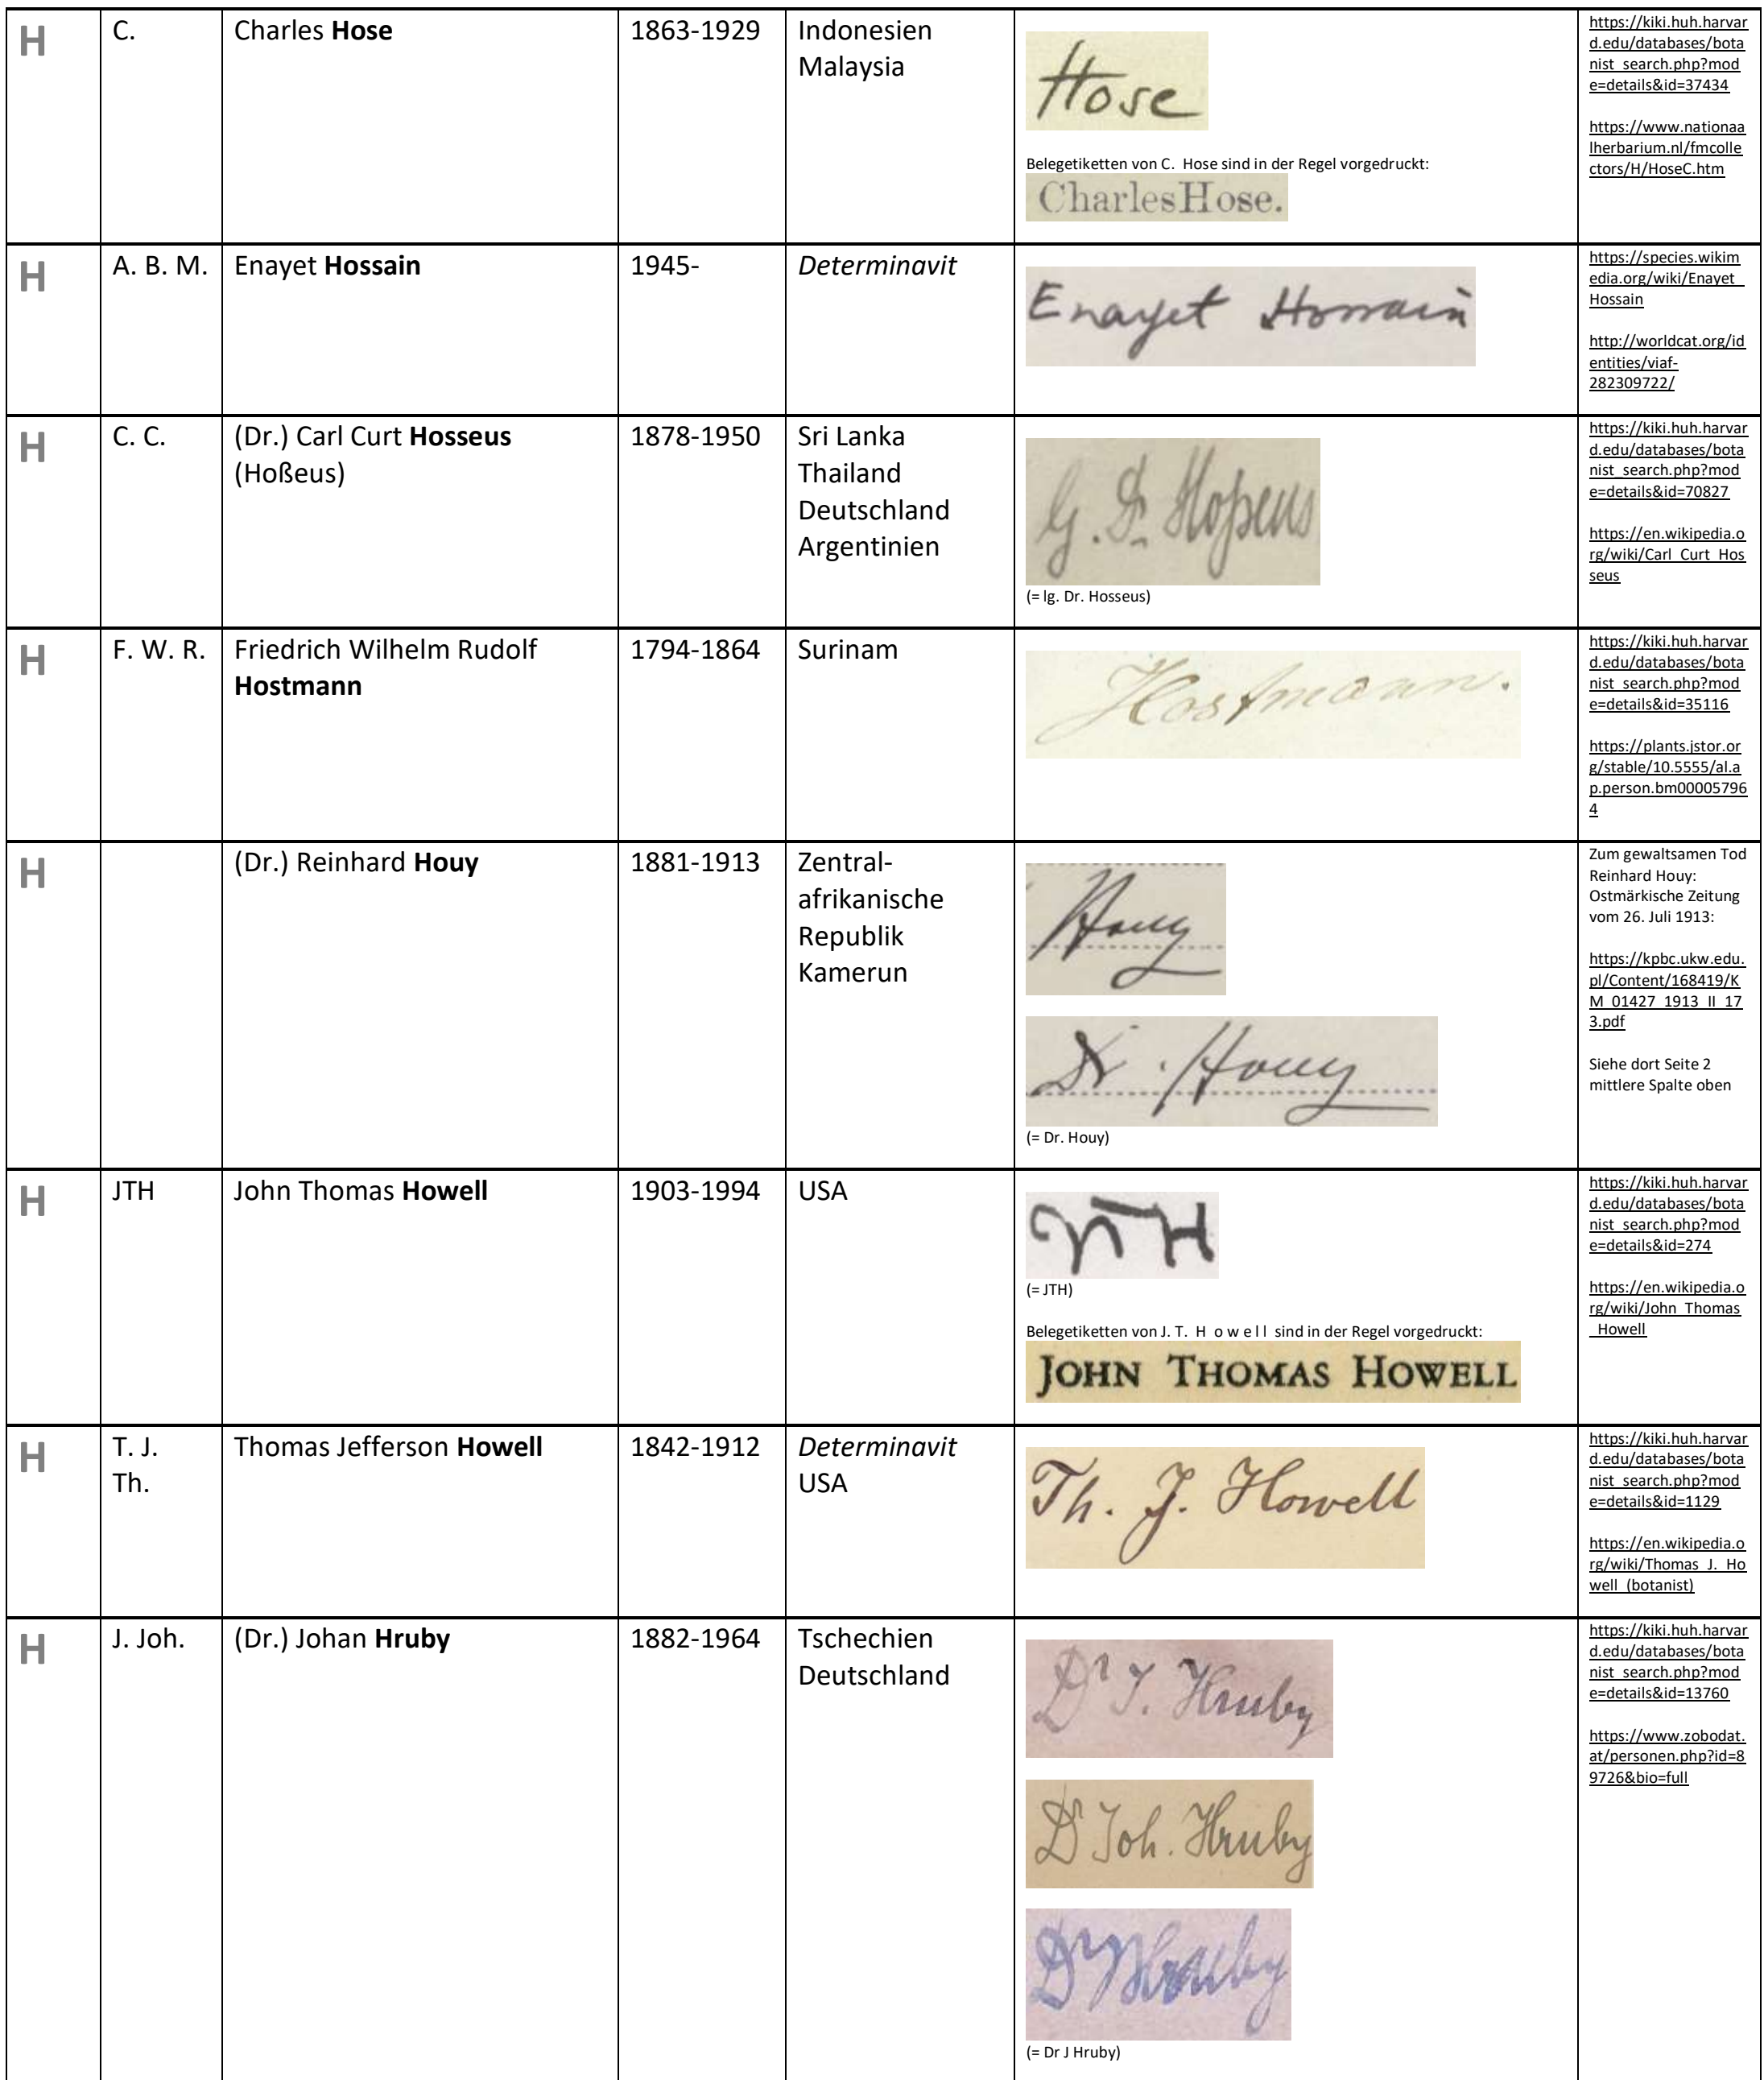 H
C.
Charles Hose
1863-1929
Indonesien
Malaysia
Hose
Belegetiketten von C. Hose sind in der Regel vorgedruckt:
Charles Hose.
https://kiki.huh.harvar
d.edu/databases/bota
nist_search.php?mod
e=details&id=37434
https://www.nationaa
lherbarium.nl/fmcolle
ctors/H/HoseC.htm
H
A. B. M.
Enayet Hossain
1945-
Determinavit
Enayet Hossain
https://species.wikim
edia.org/wiki/Enayet_
Hossain
http://worldcat.org/id
entities/viaf-
282309722/
H
C. C.
(Dr.) Carl Curt Hosseus
(Hoßeus)
1878-1950
Sri Lanka
Thailand
Deutschland
Argentinien
lg. Dr. Hoßeus
(= lg. Dr. Hosseus)
https://kiki.huh.harvar
d.edu/databases/bota
nist_search.php?mod
e=details&id=70827
https://en.wikipedia.o
rg/wiki/Carl_Curt_Hos
seus
H
F. W. R.
Friedrich Wilhelm Rudolf
Hostmann
1794-1864
Surinam
Hostmann.
https://kiki.huh.harvar
d.edu/databases/bota
nist_search.php?mod
e=details&id=35116
https://plants.jstor.or
g/stable/10.5555/al.a
p.person.bm00005796
4
H
(Dr.) Reinhard Houy
1881-1913
Zentral-
afrikanische
Republik
Kamerun
Houy
Dr. Houy
(= Dr. Houy)
Zum gewaltsamen Tod
Reinhard Houy:
Ostmärkische Zeitung
vom 26. Juli 1913:
https://kpbc.ukw.edu.
pl/Content/168419/K
M_01427_1913_II_17
3.pdf
Siehe dort Seite 2
mittlere Spalte oben
H
JTH
John Thomas Howell
1903-1994
USA
JTH
(= JTH)
Belegetiketten von J. T. H o w e l l sind in der Regel vorgedruckt:
JOHN THOMAS HOWELL
https://kiki.huh.harvar
d.edu/databases/bota
nist_search.php?mod
e=details&id=274
https://en.wikipedia.o
rg/wiki/John_Thomas
_Howell
H
T. J.
Th.
Thomas Jefferson Howell
1842-1912
Determinavit
USA
Th. J. Howell
https://kiki.huh.harvar
d.edu/databases/bota
nist_search.php?mod
e=details&id=1129
https://en.wikipedia.o
rg/wiki/Thomas_J._Ho
well_(botanist)
H
J. Joh.
(Dr.) Johan Hruby
1882-1964
Tschechien
Deutschland
Dr J. Hruby
Dr Joh. Hruby
Dr J Hruby
(= Dr J Hruby)
https://kiki.huh.harvar
d.edu/databases/bota
nist_search.php?mod
e=details&id=13760
https://www.zobodat.
at/personen.php?id=8
9726&bio=full